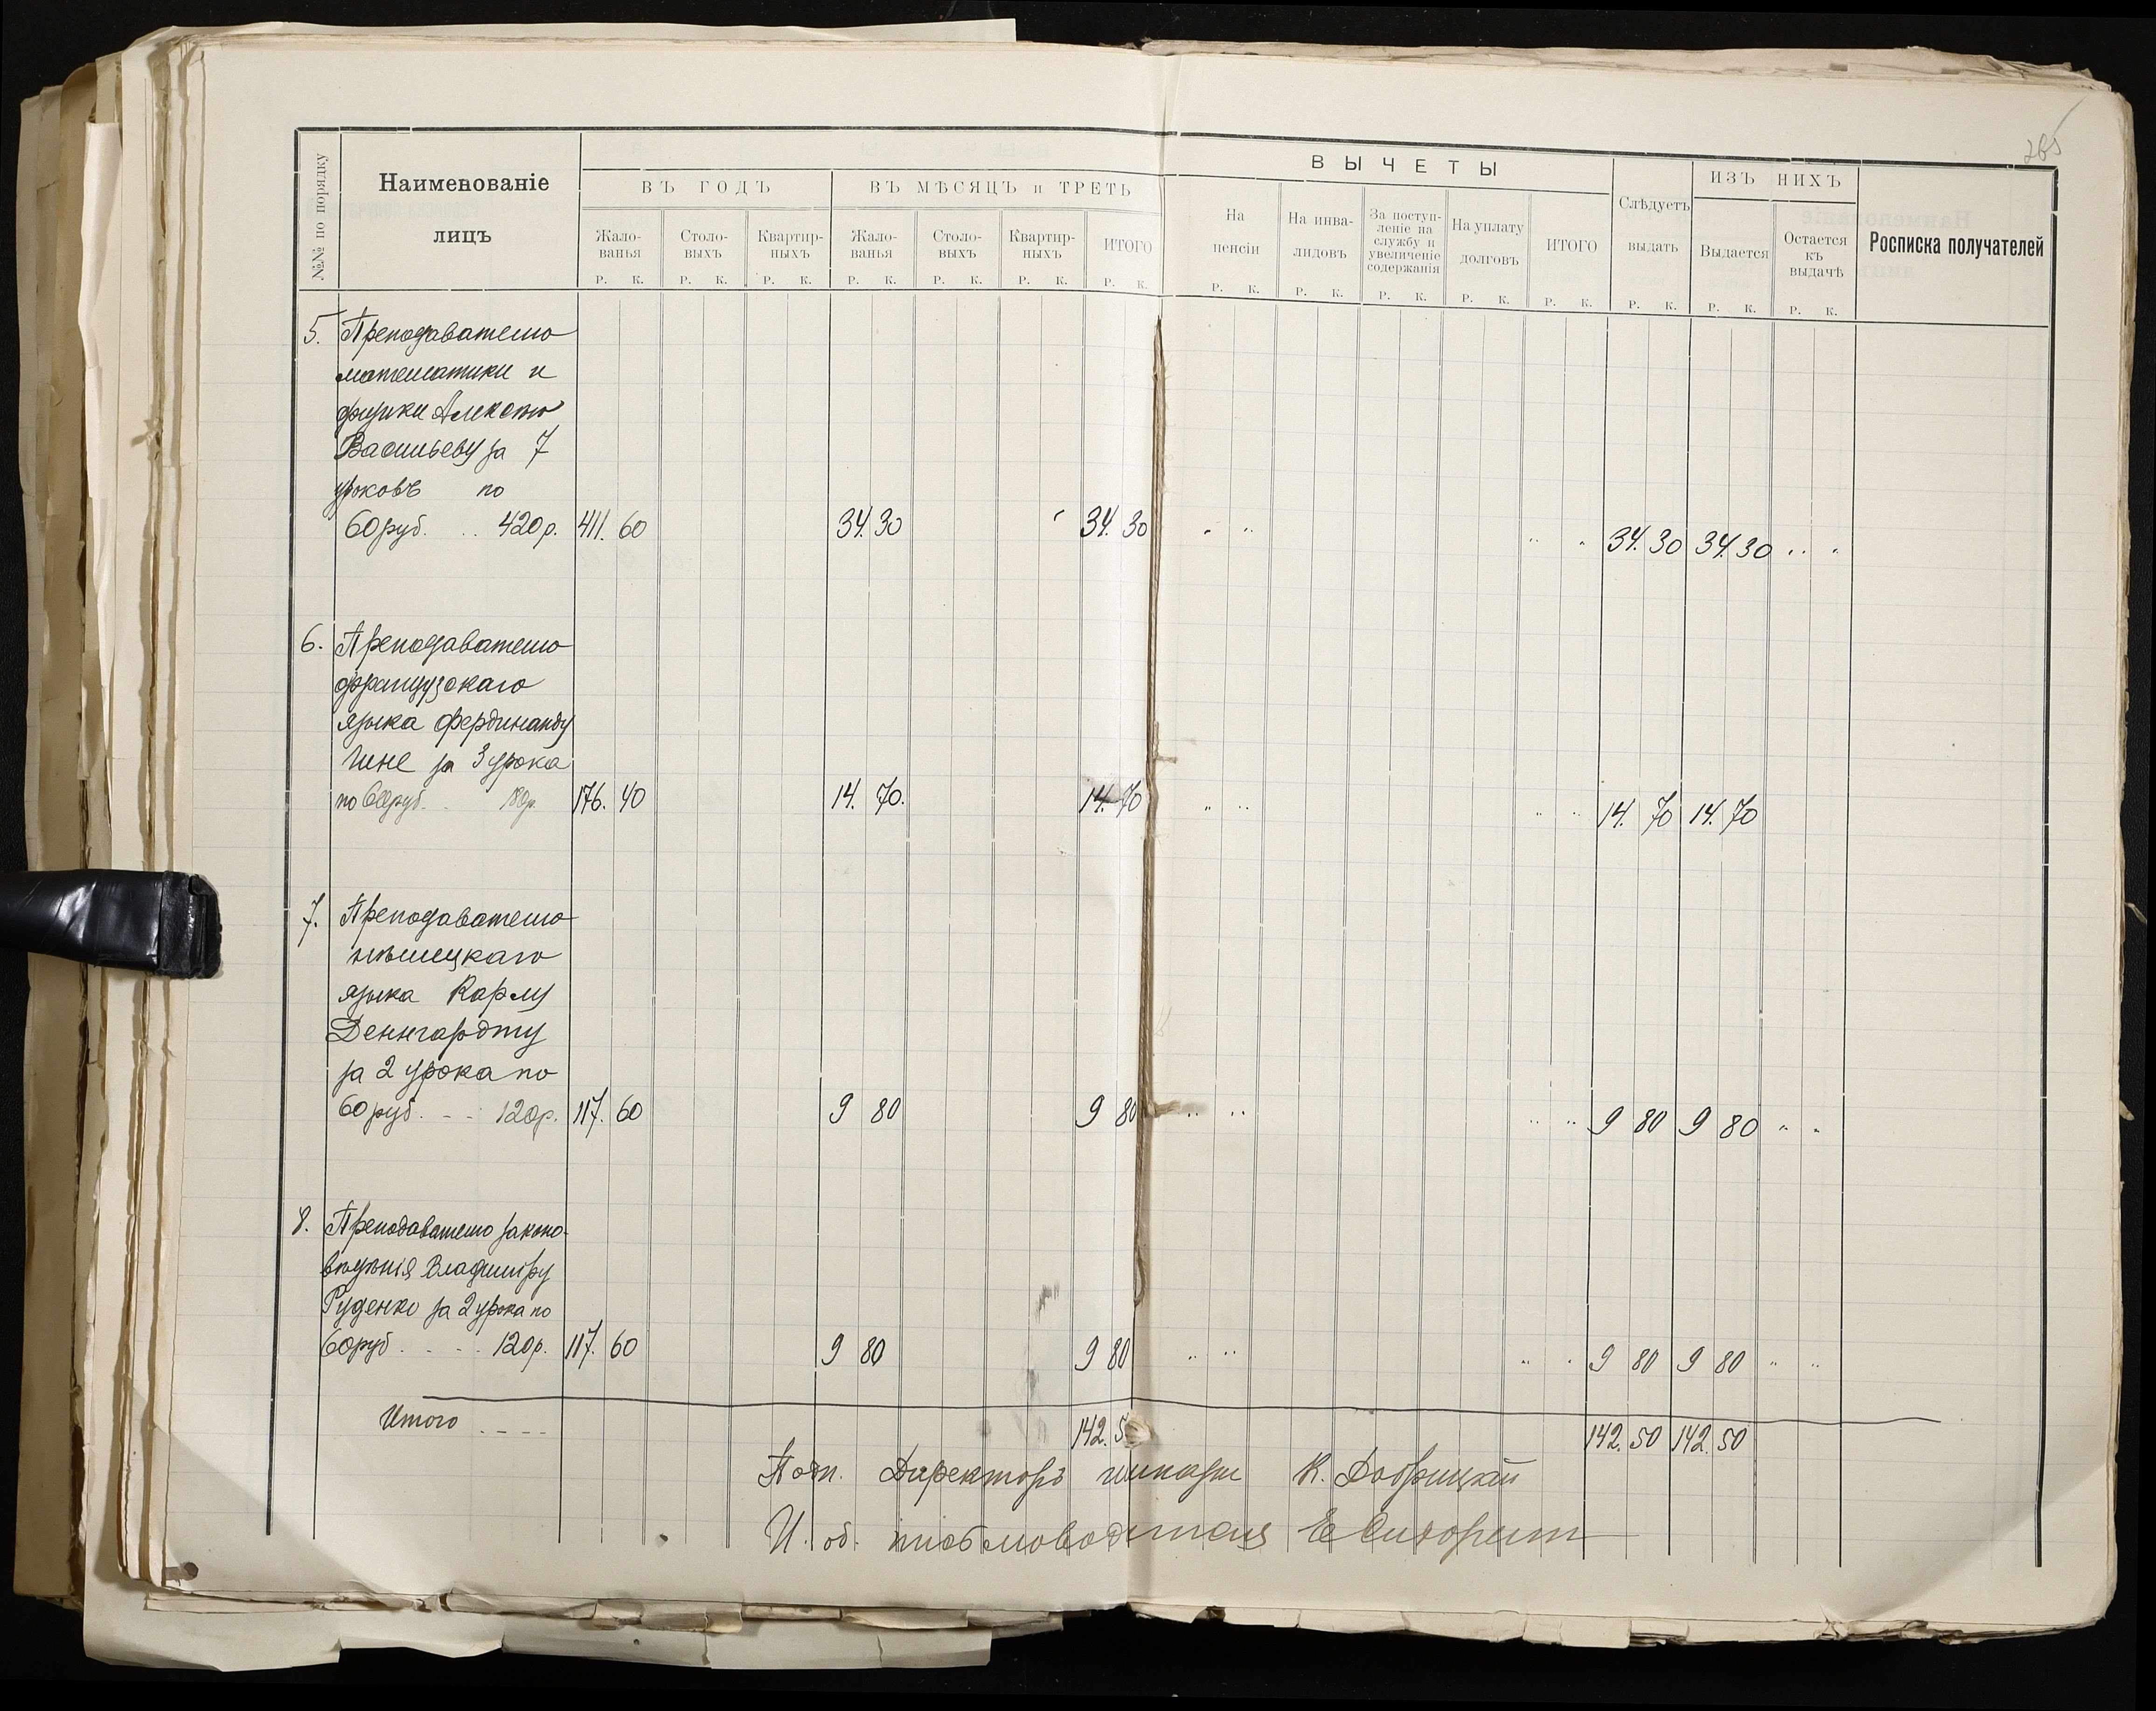 265
№№ по порядку
Наименованіе лицъ
ВЪ ГОДЪ
ВЪ МѢСЯЦЪ и ТРЕТЬ
ВЫЧЕТЫ
ИЗЪ НИХЪ
Жало-
ванья
Столо-
выхъ
Квартир-
ныхъ
Жало-
ванья
Столо-
выхъ
Квартир-
ныхъ
ИТОГО
На
пенсіи
На инва-
лидовъ
За поступ-
леніе на
службу и
увеличеніе
содержанія
На уплату
долговъ
ИТОГО
Слѣдуетъ
выдать
Выдается
Остается
къ
выдачѣ
Росписка получателей
Р. К. Р. К. Р. К. Р. К. Р. К. Р. К. Р. К. Р. К. Р. К. Р. К. Р. К. Р. К. Р. К. Р. К. Р. К.
5. Преподавателю
математики и
физики Алексѣю
Васильеву за 7
уроковъ по
60 руб. . . 420 р. 411. 60 34. 30 34. 30 34. 30 34. 30
6. Преподавателю
французскаго
языка Фердинанду
за 3 урока
по 60 руб. . 180 р. 176. 40 14. 70. 14. 70 14. 70 14. 70
7. Преподавателю
нѣмецкаго
языка Карлу
Деннгардту
за 2 урока по
60 руб. - - 120 р. 117. 60 9 80 9 80 9 80 9 80
8. Преподавателю законо-
вѣдѣнія Владиміру
Руденко за 2 урока по
60 руб . . . . 120 р. 117. 60 9 80 9 80 9 80 9 80
Итого . - - - 142. 5 142. 50 142. 50
Директоръ гимназіи К. Добрицкій
И. об. письмоводителя